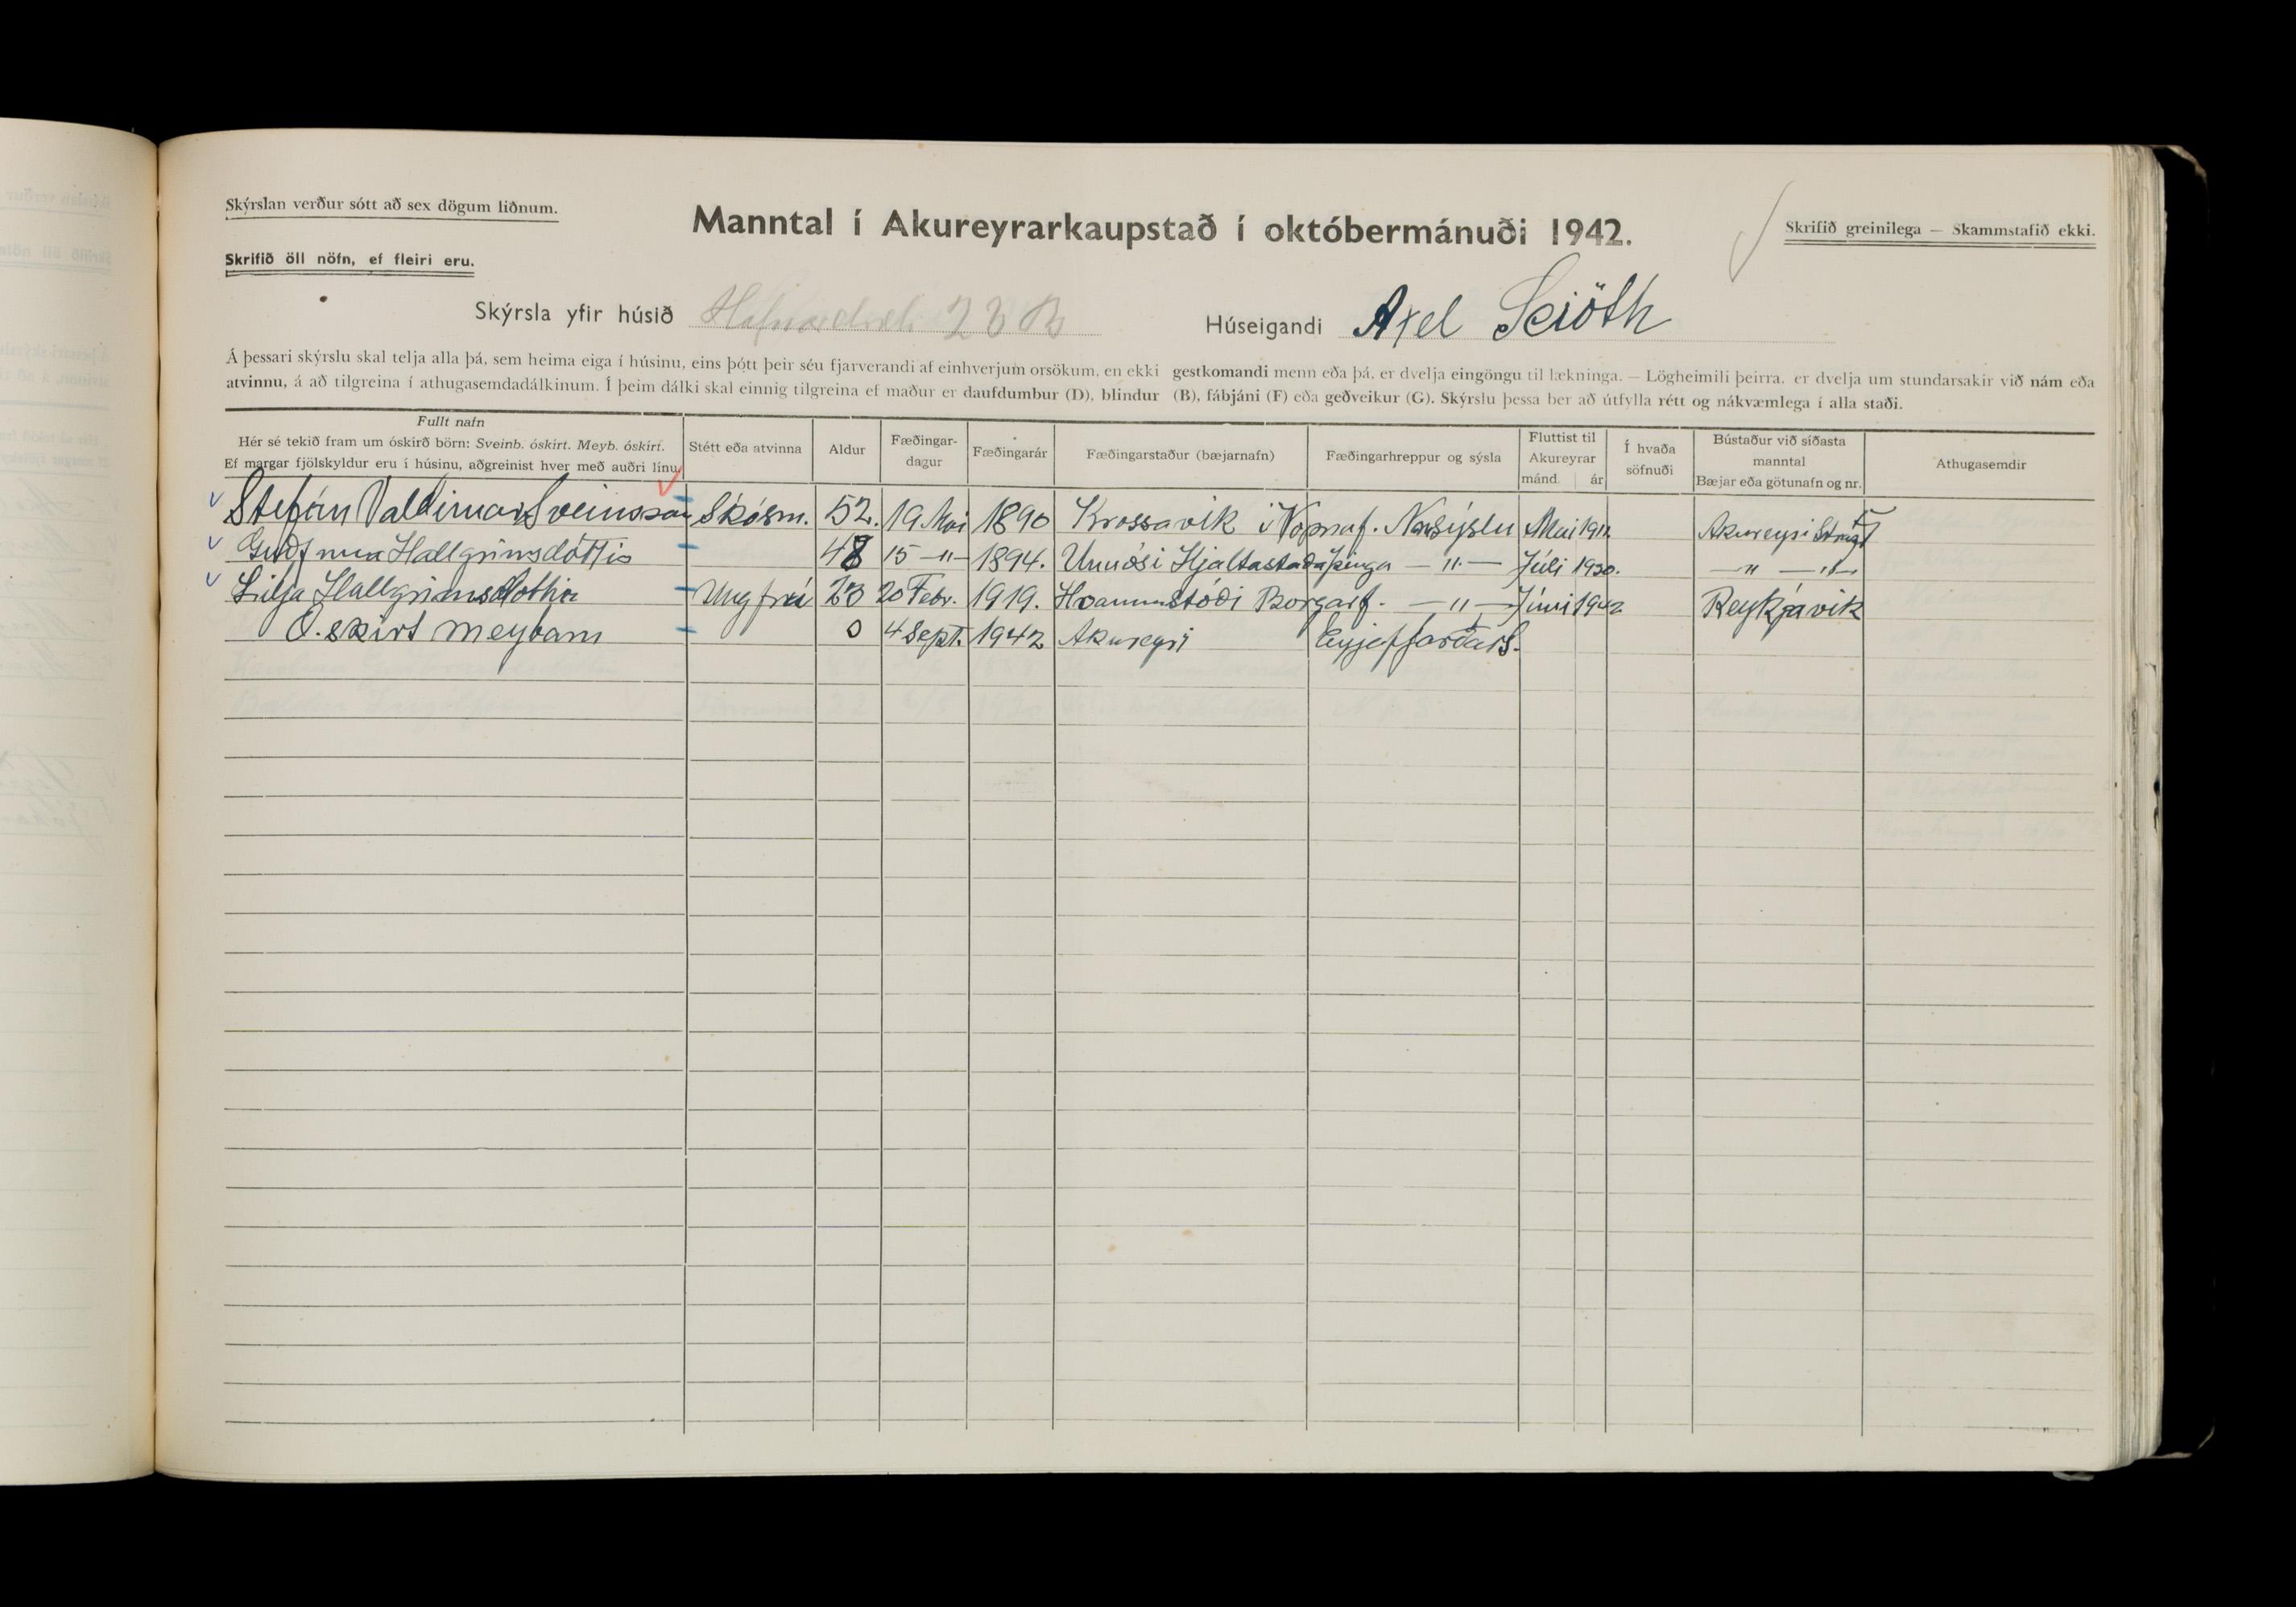 Skýrslan verður sótt að sex dögum liðnum.
Manntal í Akureyrarkaupstað í októbermánuði 1942.
Skrifið greinilega — Skammstafið ekki.
Skrifið öll nöfn, ef fleiri eru.
Skýrsla yfir húsið 23 B Húseigandi Axel Sciöth
Á þessari skýrslu skal telja alla þá, sem heima eiga í húsinu, eins þótt þeir séu fjarverandi af einhverjum orsökum, en ekki gestkomandi menn eða þá, er dvelja eingöngu til lækninga. — Lögheimili þeirra, er dvelja um stundarsakir við nám eða
atvinnu, á að tilgreina í athugasemdadálkinum. Í þeim dálki skal einnig tilgreina ef maður er daufdumbur (D), blindur (B), fábjáni (F) eða geðveikur (G). Skýrslu þessa ber að útfylla rétt og nákvæmlega í alla staði.
Fullt nafn
Hér sé tekið fram um óskírð börn: Sveinb. óskírt. Meyb. óskírt.
Ef margar fjölskyldur eru í húsinu, aðgreinist hver með auðri línu.
Stétt eða atvinna
Aldur
Fæðingar-
dagur
Fæðingarár
Fæðingarstaður (bæjarnafn)
Fæðingarhreppur og sýsla
Fluttist til
Akureyrar
mánd. ár
Í hvaða
söfnuði
Bústaður við síðasta
manntal
Bæjar eða götunafn og nr.
Athugasemdir
Stefán Valdimar Sveinsson Skósm. 52. 19. Mai 1890 Krossavik í Vopnaf. Mai 1911. Akureyri
Hallgrímsdóttir 48 15 —"— 1894. Unaósi Hjaltastaðaþinga —"— Júli 1930. —"— —"—
Lilja Hallgrímsdóttir Ungfrú 23 20 Febr. 1919. Hvannstóði Borgarf. —"— Júni 1942 Reykjavik
Ó.skírt meybarn 0 4 Sept. 1942 Akureyri Eyjafjarðars.